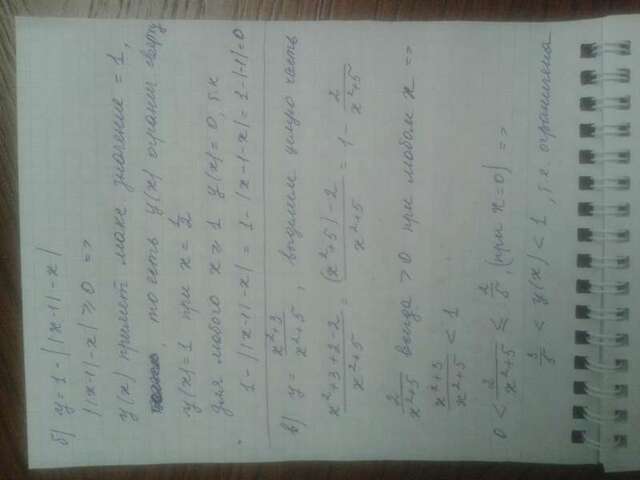 б) y = 1 - ||x-1| - x|
||x-1| - x| ≥ 0 =>
y(x) примет макс значение = 1,
, то есть y(x) огранич сверху
y(x)=1 при x = 1/2
для любого x ≥ 1 y(x) = 0, т.к
1 - ||x-1| - x| = 1 - |x-1-x| = 1-|-1|=0
в) y = (x²+3)/(x²+5), выделим целую часть
(x²+3+2-2)/(x²+5) = ((x²+5)-2)/(x²+5) = 1 - 2/(x²+5)
2/(x²+5) всегда > 0 при любом x =>
(x²+3)/(x²+5) < 1
0 < 2/(x²+5) ≤ 2/5, (при x=0) =>
3/5 < y(x) < 1, т.е. ограничена